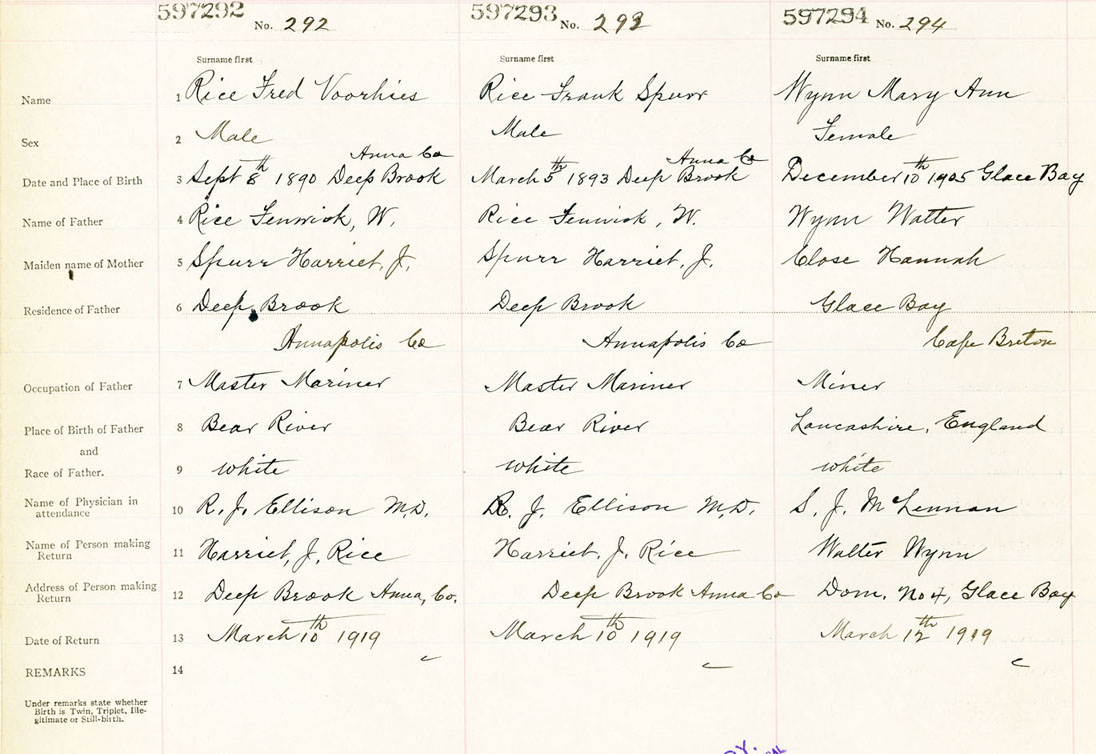 597292 597293 597294
No. 292 No. 293 No. 294
Surname first Surname first Surname first
Name 1 Rice Fred Voorhies Rice Frank Spurr Wynn Mary Ann
Sex 2 Male Male Female
Anna Co Anna Co
Date and Place of Birth 3 Sept 8th 1890 Deep Brook March 5th 1893 Deep Brook December 10th 1905 Glace Bay
Name of Father 4 Rice Fenwick, W. Rice Fenwick, W. Wynn Walter
Maiden name of Mother 5 Spurr Harriet, J. Spurr Harriet, J. Close Hannah
Residence of Father 6 Deep Brook Deep Brook Glace Bay
Annapolis Co Annapolis Co Cape Breton
Occupation of Father 7 Master Mariner Master Mariner Miner
Place of Birth of Father 8 Bear River Bear River Lancashire, England
and
Race of Father. 9 white white white
Name of Physician in
attendance 10 R. J. Ellison M.D. R. J. Ellison M.D. S. J. McLennan
Name of Person making
Return 11 Harriet, J, Rice Harriet. J. Rice Walter Wynn
Address of Person making
Return 12 Deep Brook Anna, Co. Deep Brook Anna Co Dom. No 4, Glace Bay
Date of Return 13 March 10th 1919 March 10th 1919 March 12th 1919
REMARKS 14
Under remarks state whether
Birth is Twin, Triplet, Ille-
gitimate or Still-birth.